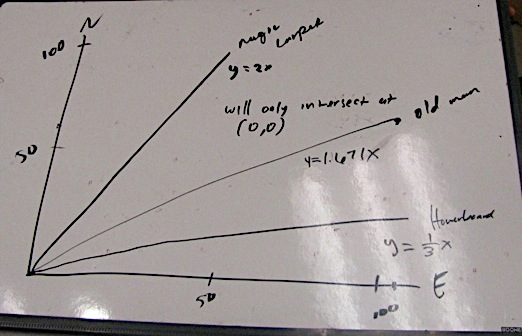 N
100
magic
carpet
y=2x
will only intersect at
(0,0)
old man
50
y=1.671x
Hoverboard
y=1/3x
E
50
100